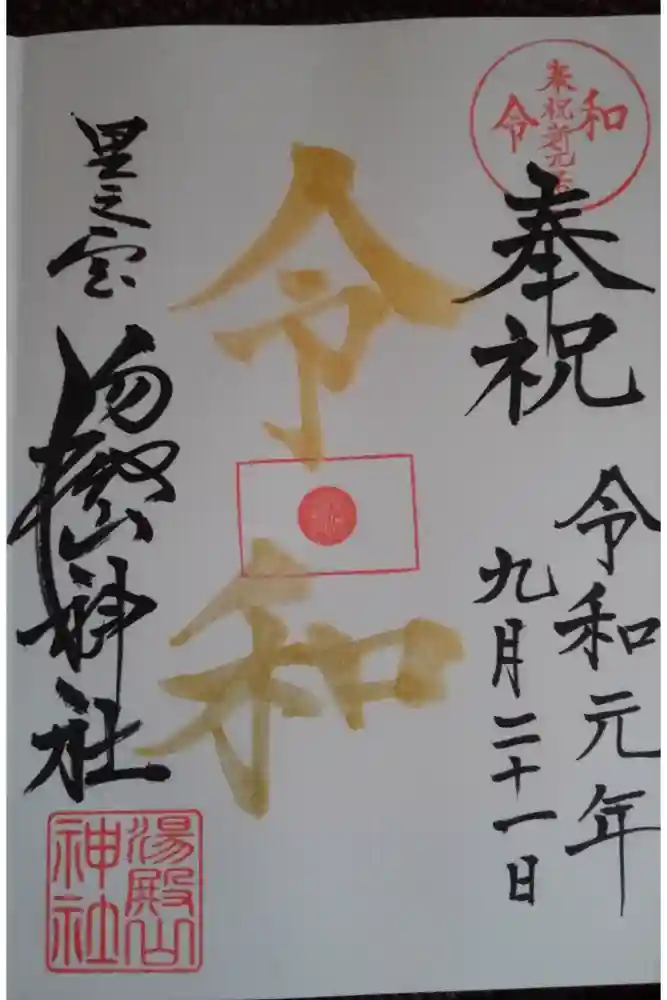 令和
奉祝新元号
奉祝
令和元年
九月二十一日
令和
里之宮
湯殿山神社
湯殿山
神社